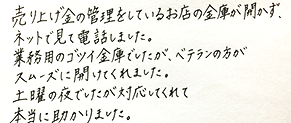 売り上げ金の管理をしているお店の金庫が開かず、
ネットで見て電話しました。
業務用のゴツイ金庫でしたが、ベテランの方が
スムーズに開けてくれました。
土曜の夜でしたが対応してくれて
本当に助かりました。